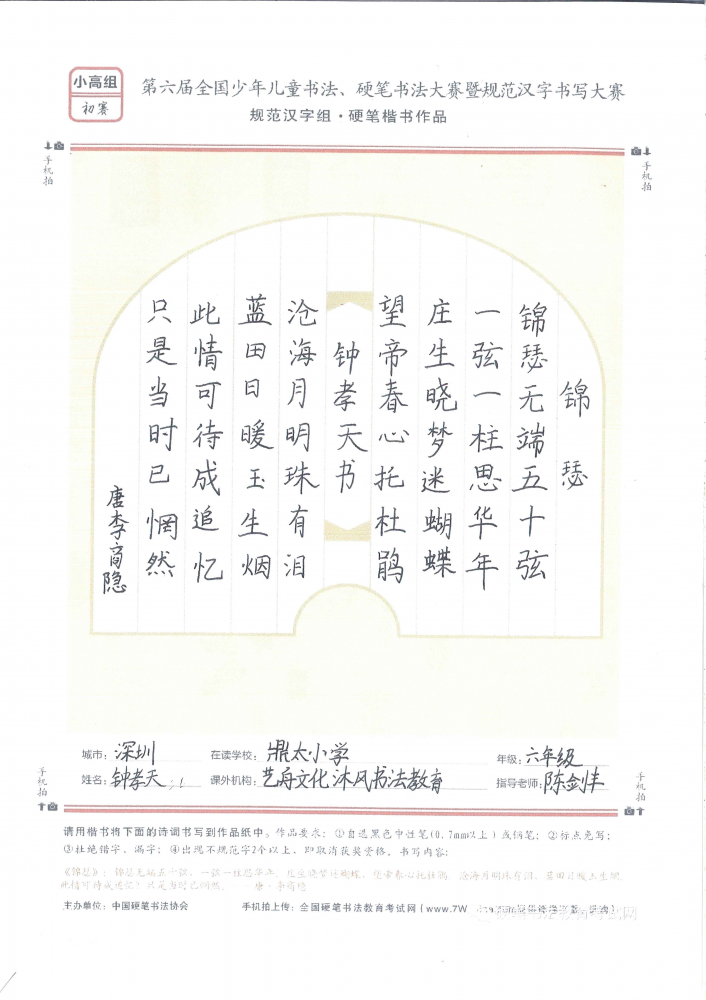 小高组
初赛
第六届全国少年儿童书法、硬笔书法大赛暨规范汉字书写大赛
规范汉字组·硬笔楷书作品
手机拍
手机拍
锦瑟
锦瑟无端五十弦
一弦一柱思华年
庄生晓梦迷蝴蝶
望帝春心托杜鹃
钟孝天书
沧海月明珠有泪
蓝田日暖玉生烟
此情可待成追忆
只是当时已惘然
唐李商隐
城市：深圳 在读学校：鼎太小学 年级：六年级
姓名：钟孝天 课外机构：艺舟文化沐风书法教育 指导老师：陈剑丰
手机拍
手机拍
请用楷书将下面的诗词书写到作品纸中。作品要求：①自选黑色中性笔(0.7mm以上)或钢笔；②标点免写；
③杜绝错字、漏字；④出现不规范字2个以上，即取消获奖资格。书写内容：
《锦瑟》：锦瑟无端五十弦，一弦一柱思华年。庄生晓梦迷蝴蝶，望帝春心托杜鹃。沧海月明珠有泪，蓝田日暖玉生烟。
此情可待成追忆？只是当时已惘然。——唐·李商隐
主办单位：中国硬笔书法协会 手机拍上传：全国硬笔书法教育考试网（www.7W